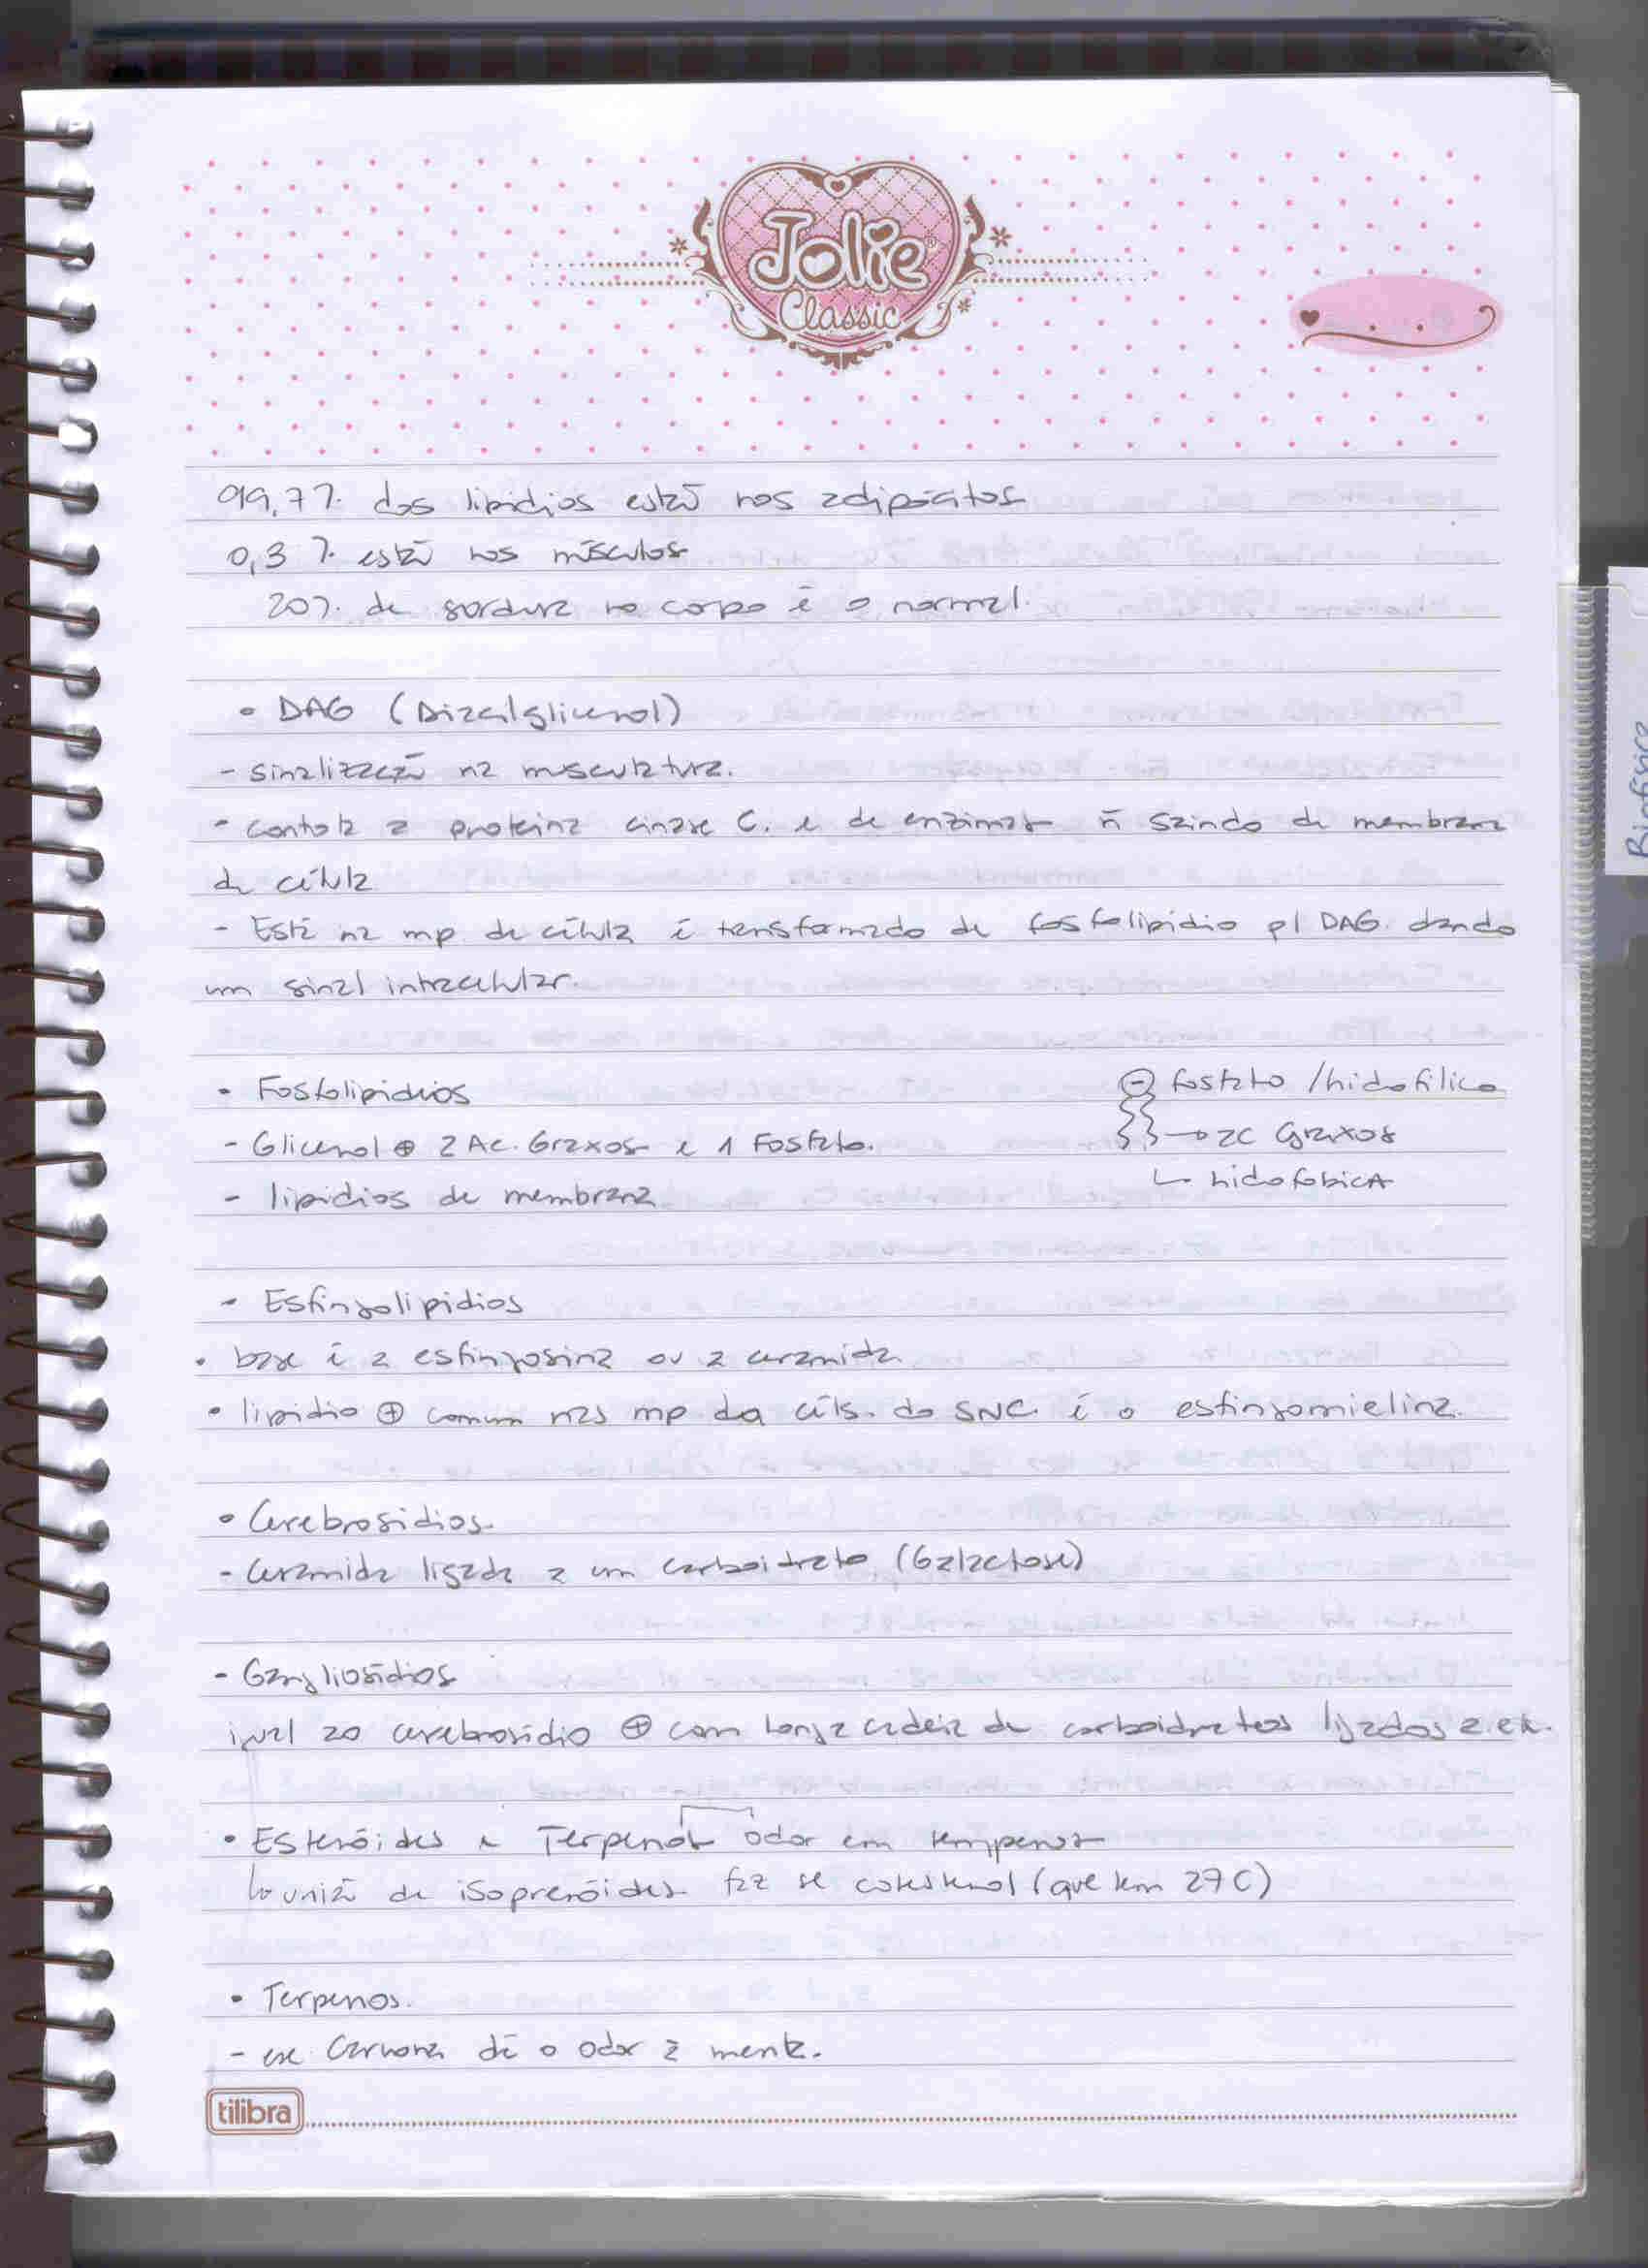 Jolie®
Classic
99,7%. dos lipidios estão nos adipócitos
0,3 %. estão nos músculos
20%. de gordura no corpo é o normal.
• DAG (Diacilglicerol)
- sinalização na musculatura.
- controla a proteina cinase C. e de enzimas ñ saindo da membrana
da célula
- Está na mp da célula é transformado de fosfolipidio p/ DAG. dando
um sinal intracelular.
• Fosfolipidios
⊖ fosfato /hidofilico
- Glicerol ⊕ 2 Ac. Graxos e 1 Fosfato.
→ ac Graxos
- lipidios de membrana
↳ hidofobica
- Esfingolipidios
• base é a esfingosina ou a ceramida.
• lipidio ⊕ comum nas mp da céls. do SNC. é o esfingomielina.
• Cerebrosidios.
- Ceramida ligada a um carboidrato (Galactose)
- Gangliosídios
igual ao cerebrosidio ⊕ com longa cadeia de carboidratos ligados a ela.
• Esteróides e Terpenos odor em temperos
↳ união de isoprenóides faz se colesterol (que tem 27C)
• Terpenos.
- ex Carvona dá o odor a menta.
tilibra
Biofísica